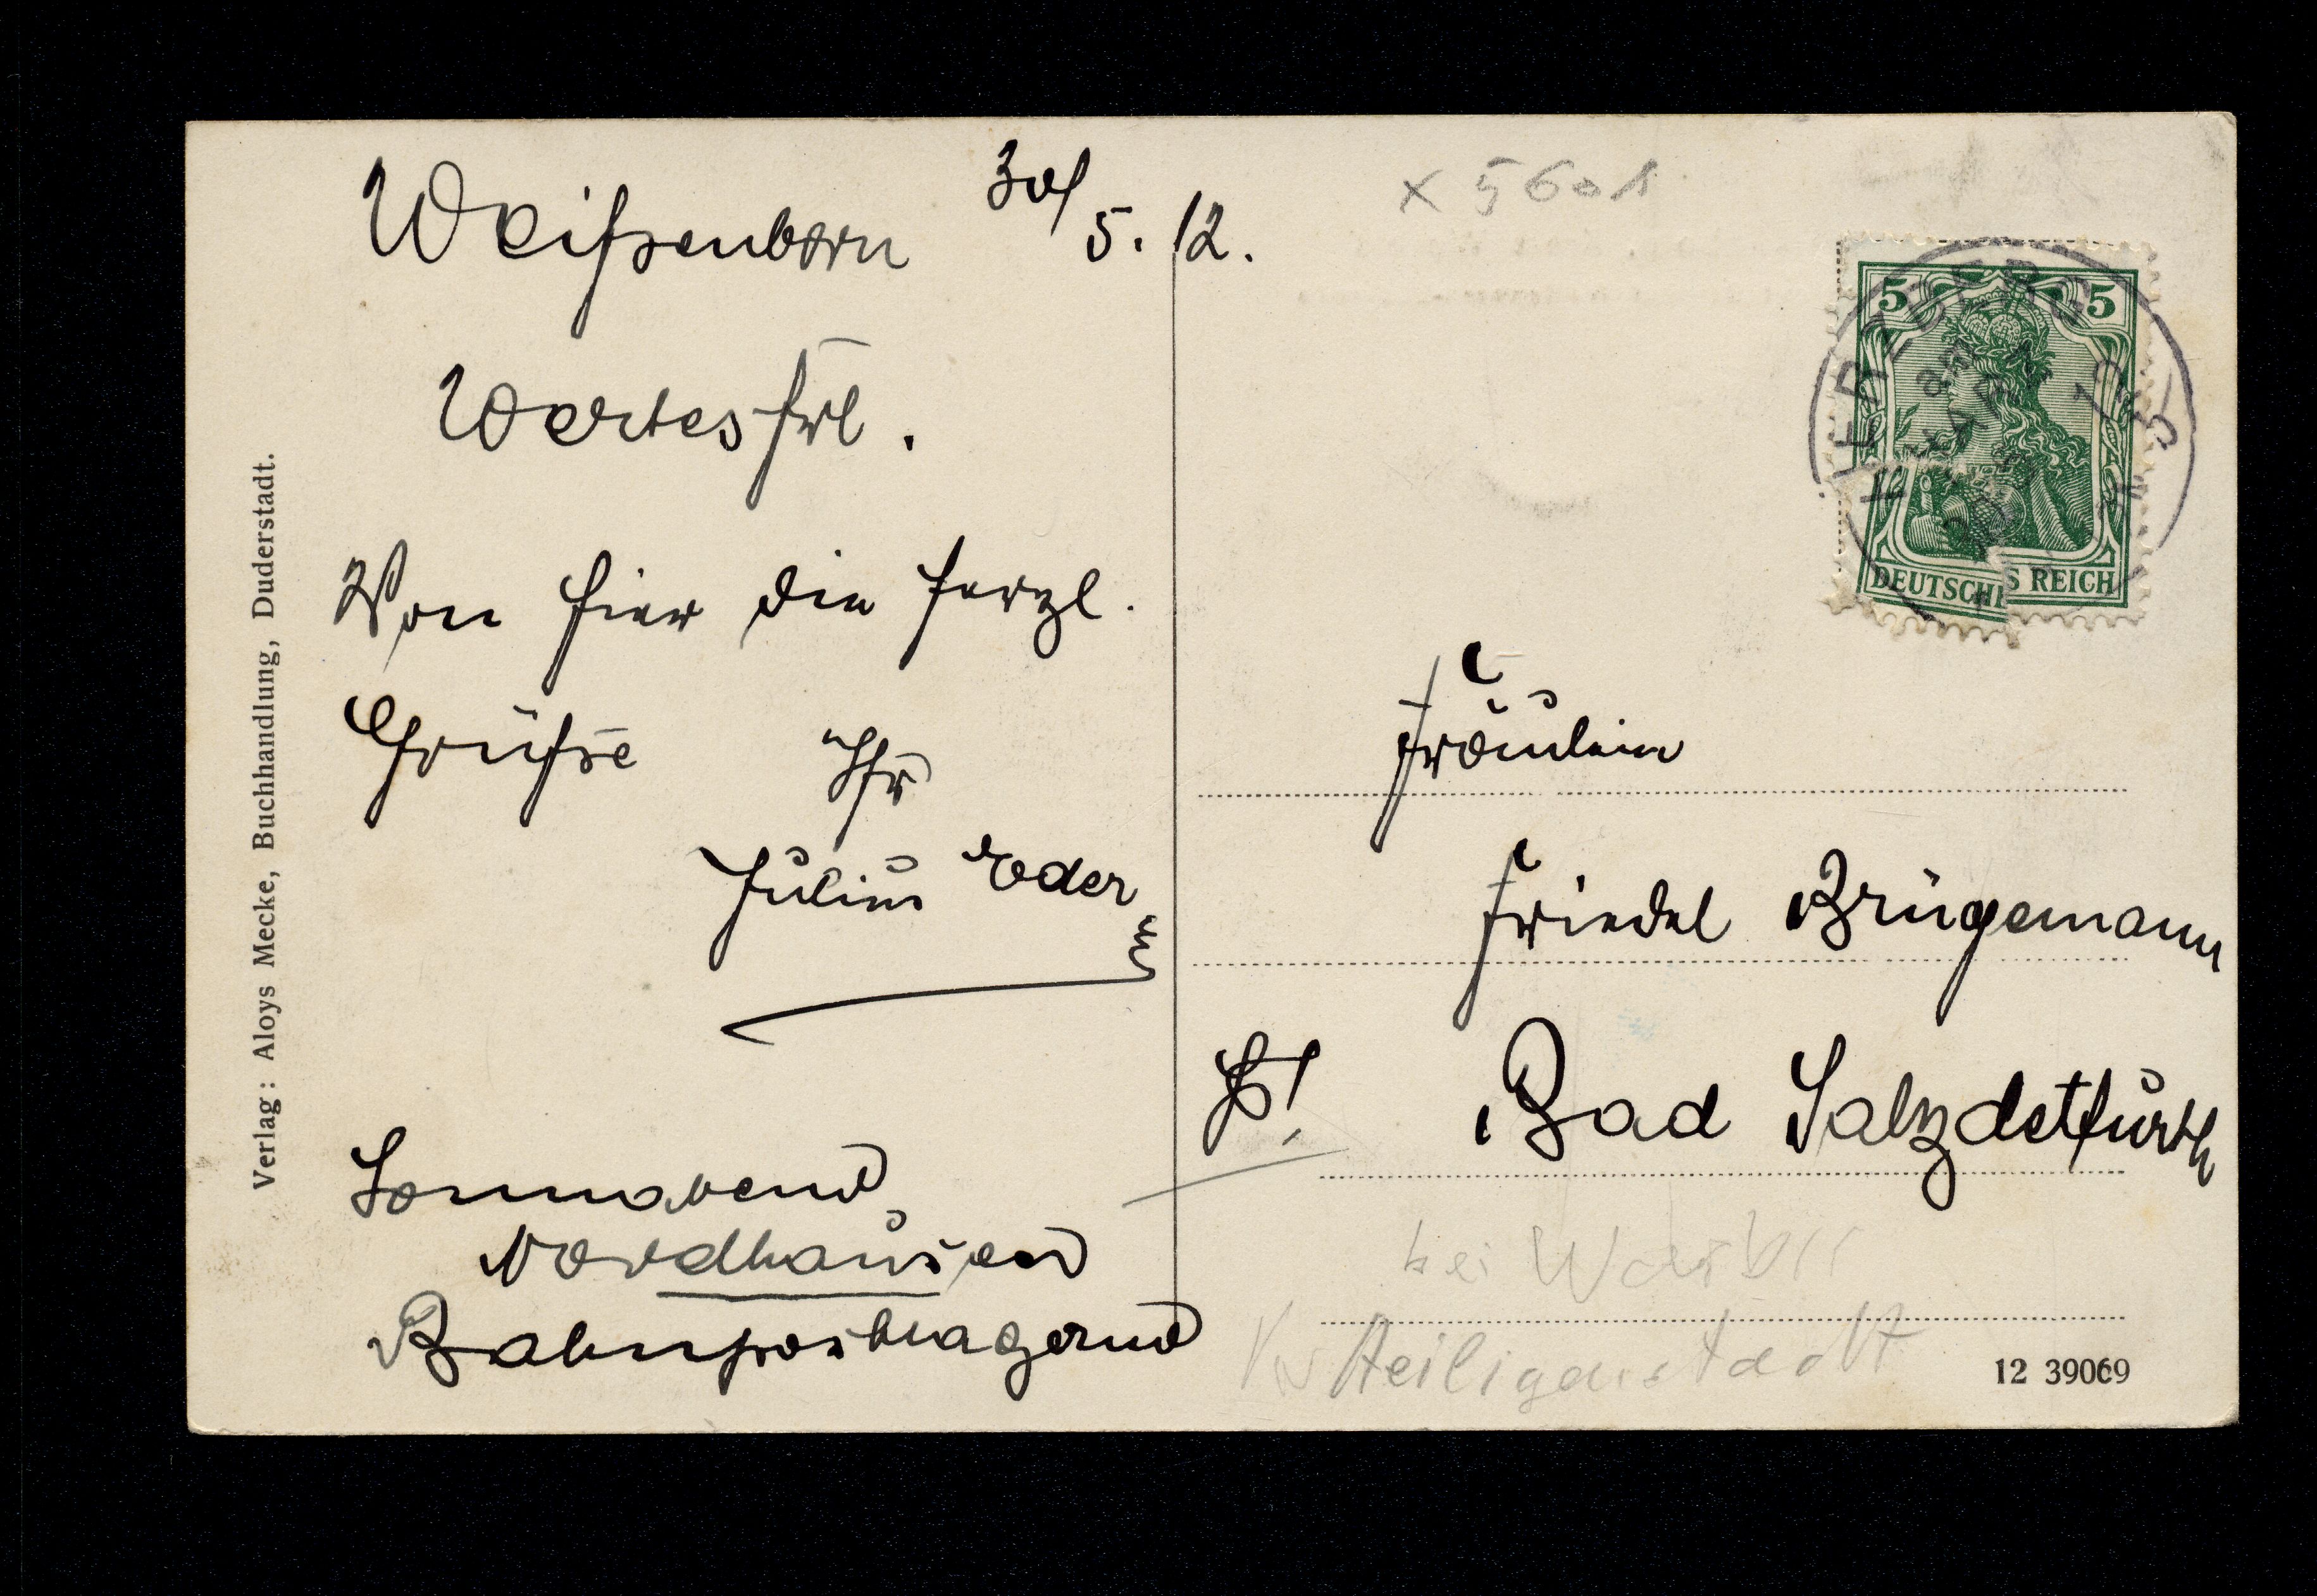 Weißenborn 30/5. 12.
Wertes Frl.
Von hier die herzl.
Grüße Ihr
Julius Eder
Sonnabend
Nordhausen
Bahnpostlagernd
Verlag: Aloys Mecke, Buchhandlung, Duderstadt.
x 5601
5 5
DEUTSCHES REICH
Fräulein
Friedel Brügemann
Bad Salzdetfurth
bei
Heiligenstadt
12 39069